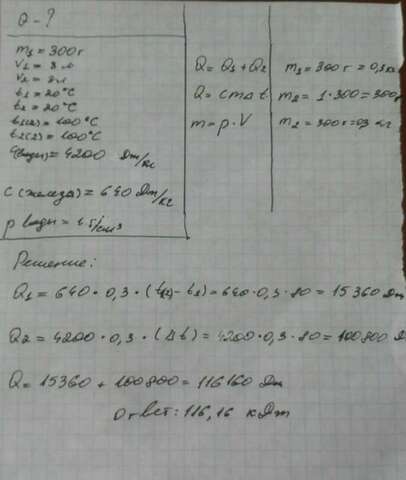 Q - ?
m₁ = 300 г
V₁ = 3 л
V₂ = 3л
t₁ = 20°C
t₂ = 20°C
t₂₍₂₎ = 100°C
(воды) = 4200 Дж/кг
C (железа) = 640 Дж/кг
ρ воды = 1 г/см³
Q = Q₁ + Q₂
Q = cmΔt
m = ρ · V
m₁ = 300 г = 0,3 кг
m₂ = 1 · 300 = 300г
m₂ = 300г = 0,3 кг
Решение:
Q₁ = 640 · 0,3 · ( - t₁) = 640 · 0,3 · 80 = 15360 Дж
Q₂ = 4200 · 0,3 · (Δt) = 4200 · 0,3 · 80 = 100800 Д
Q = 15360 + 100800 = 116160 Дж
Ответ: 116,16 кДж